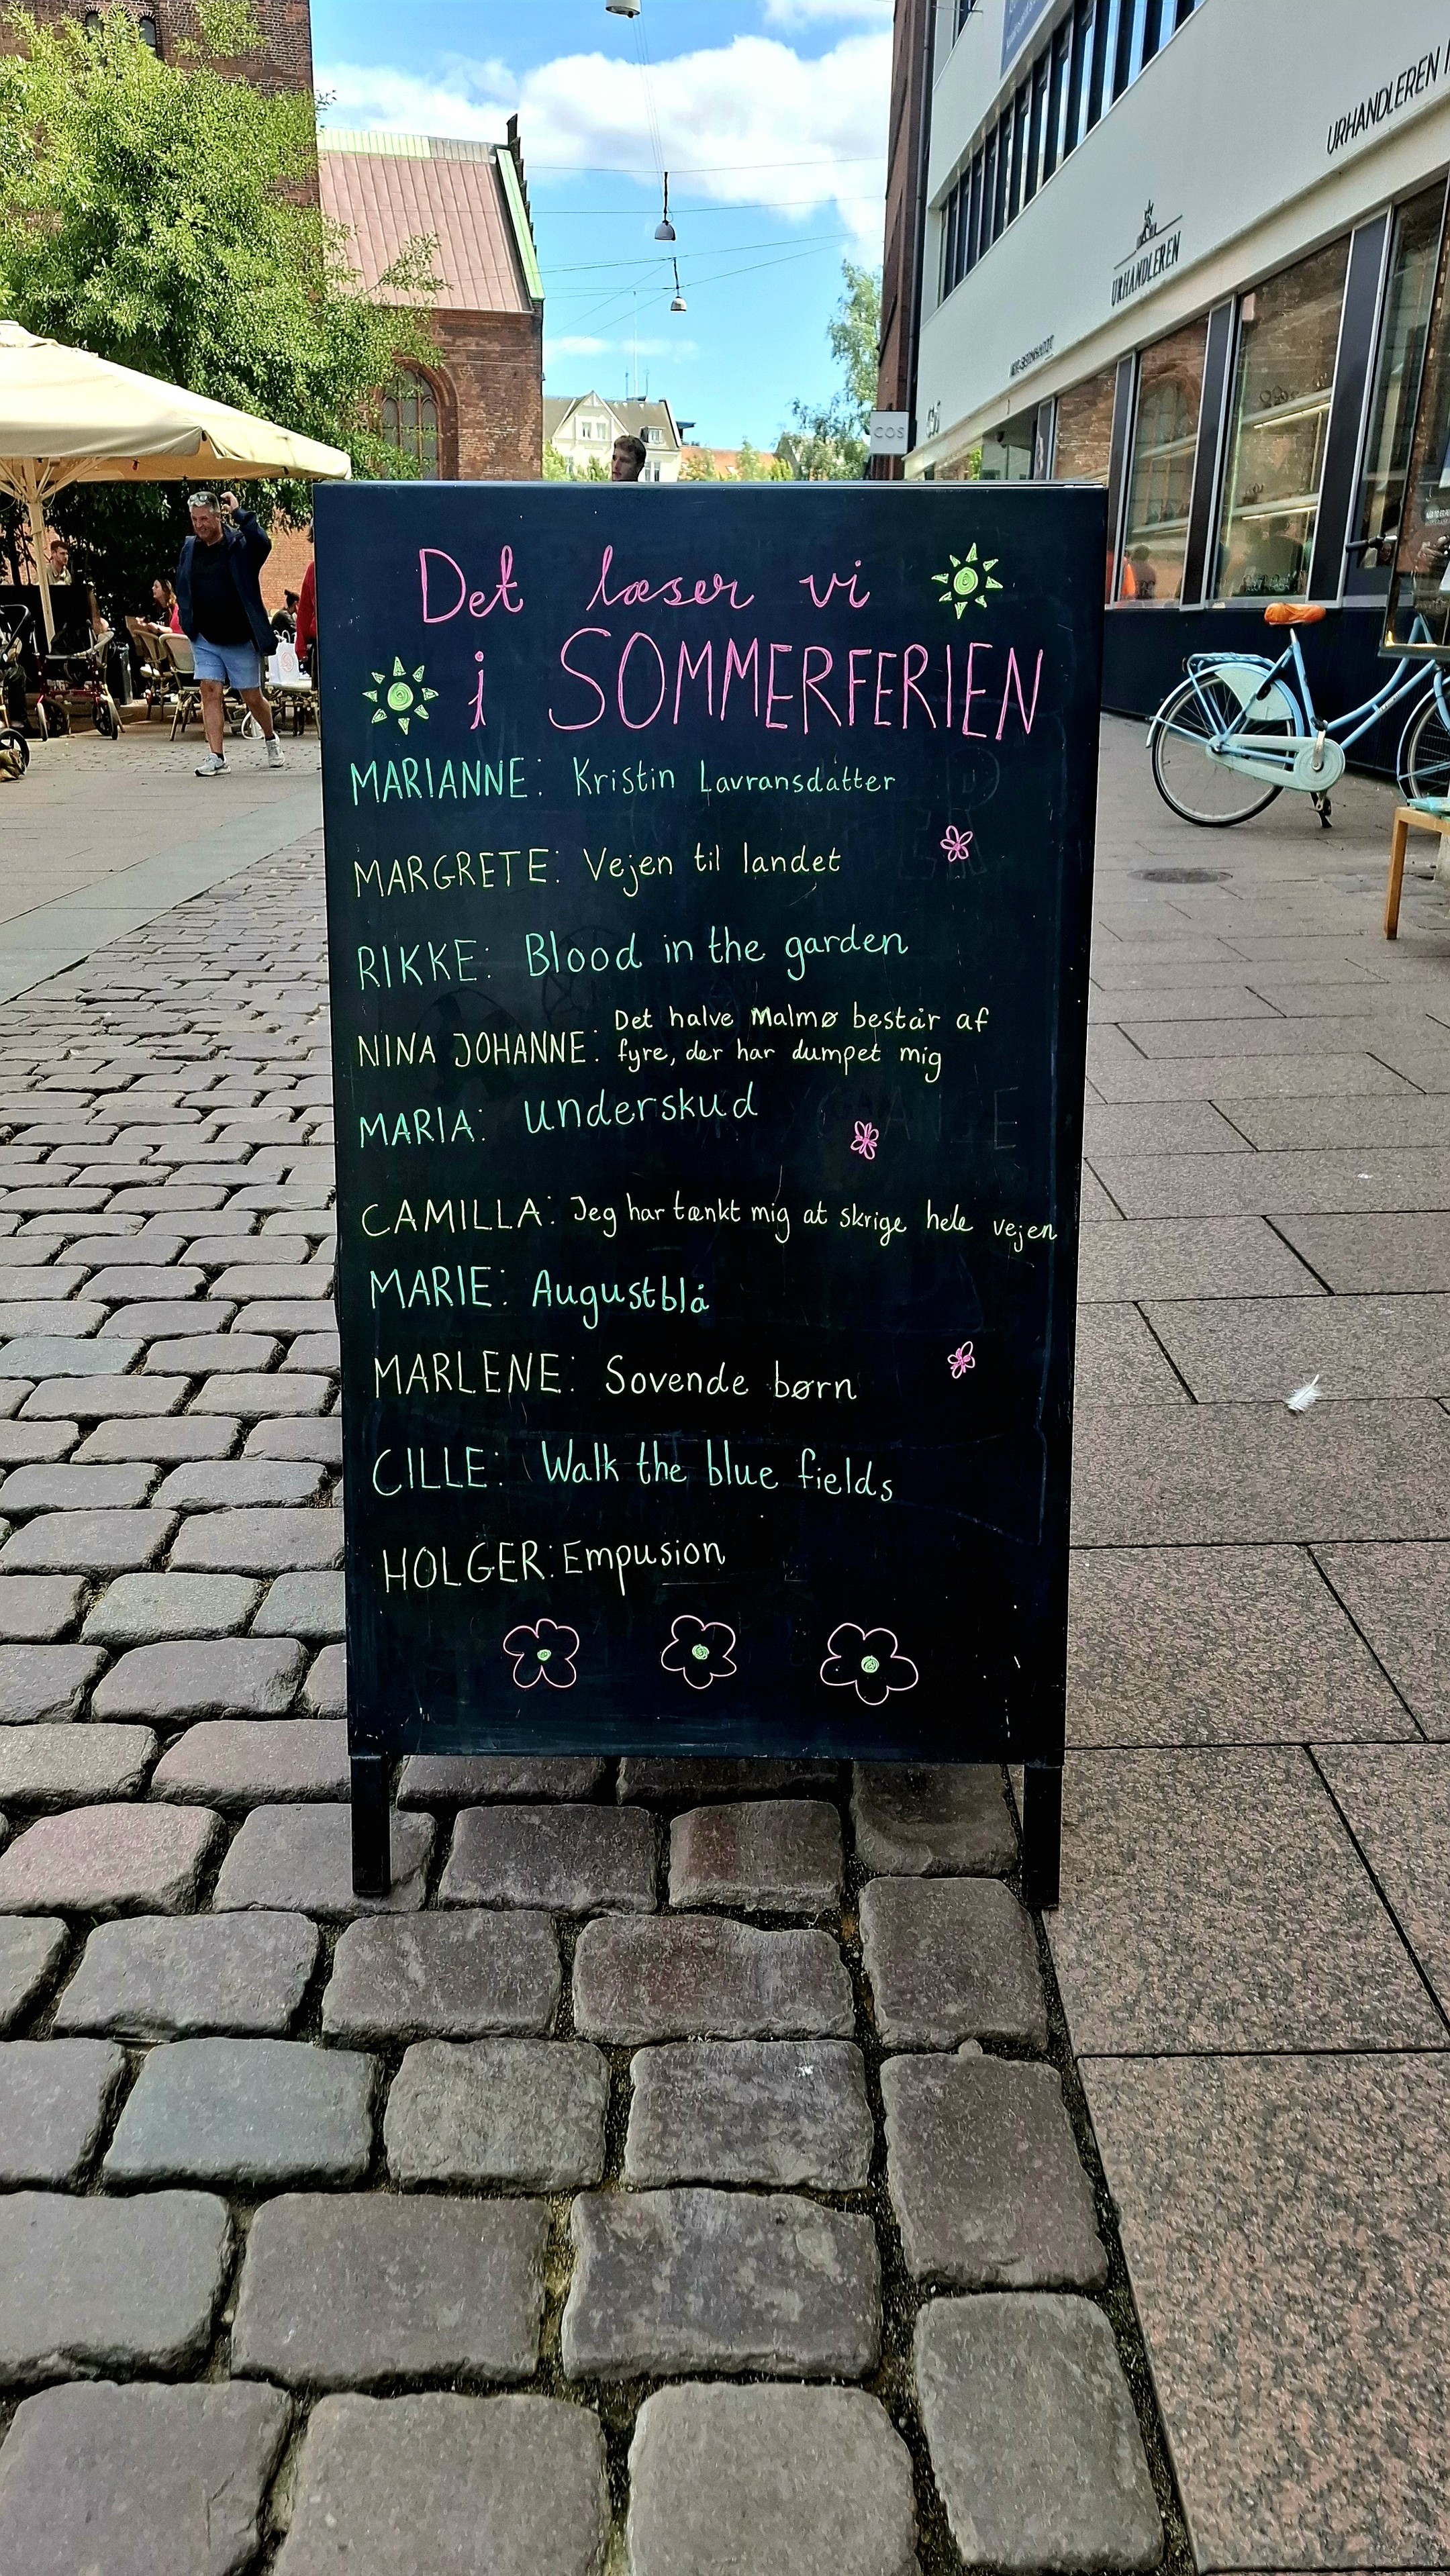 Det læser vi
i SOMMERFERIEN
MARIANNE: Kristin Lavransdatter
MARGRETE: Vejen til landet
RIKKE: Blood in the garden
NINA JOHANNE: Det halve Malmø består af
fyre, der har dumpet mig
MARIA: Underskud
CAMILLA: Jeg har tænkt mig at skrige hele vejen
MARIE: Augustblå
MARLENE: Sovende børn
CILLE: Walk the blue fields
HOLGER: Empusion
COS
COS
URHANDLEREN
URHANDLEREN